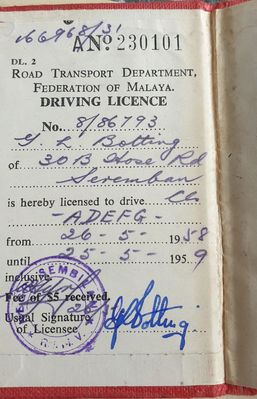 166968/31
A Nº 230101
DL. 2
ROAD TRANSPORT DEPARTMENT,
FEDERATION OF MALAYA.
DRIVING LICENCE
No. 8/86793
G. L. Botting
of 30B Hose Rd
Seremban
is hereby licensed to drive Cls
-ADEFG-
from 26 - 5 - 1958
until 25 - 5 - 1959
inclusive.
Fee of $5 received.
Usual Signature
of Licensee
SEMBILAN
Botting